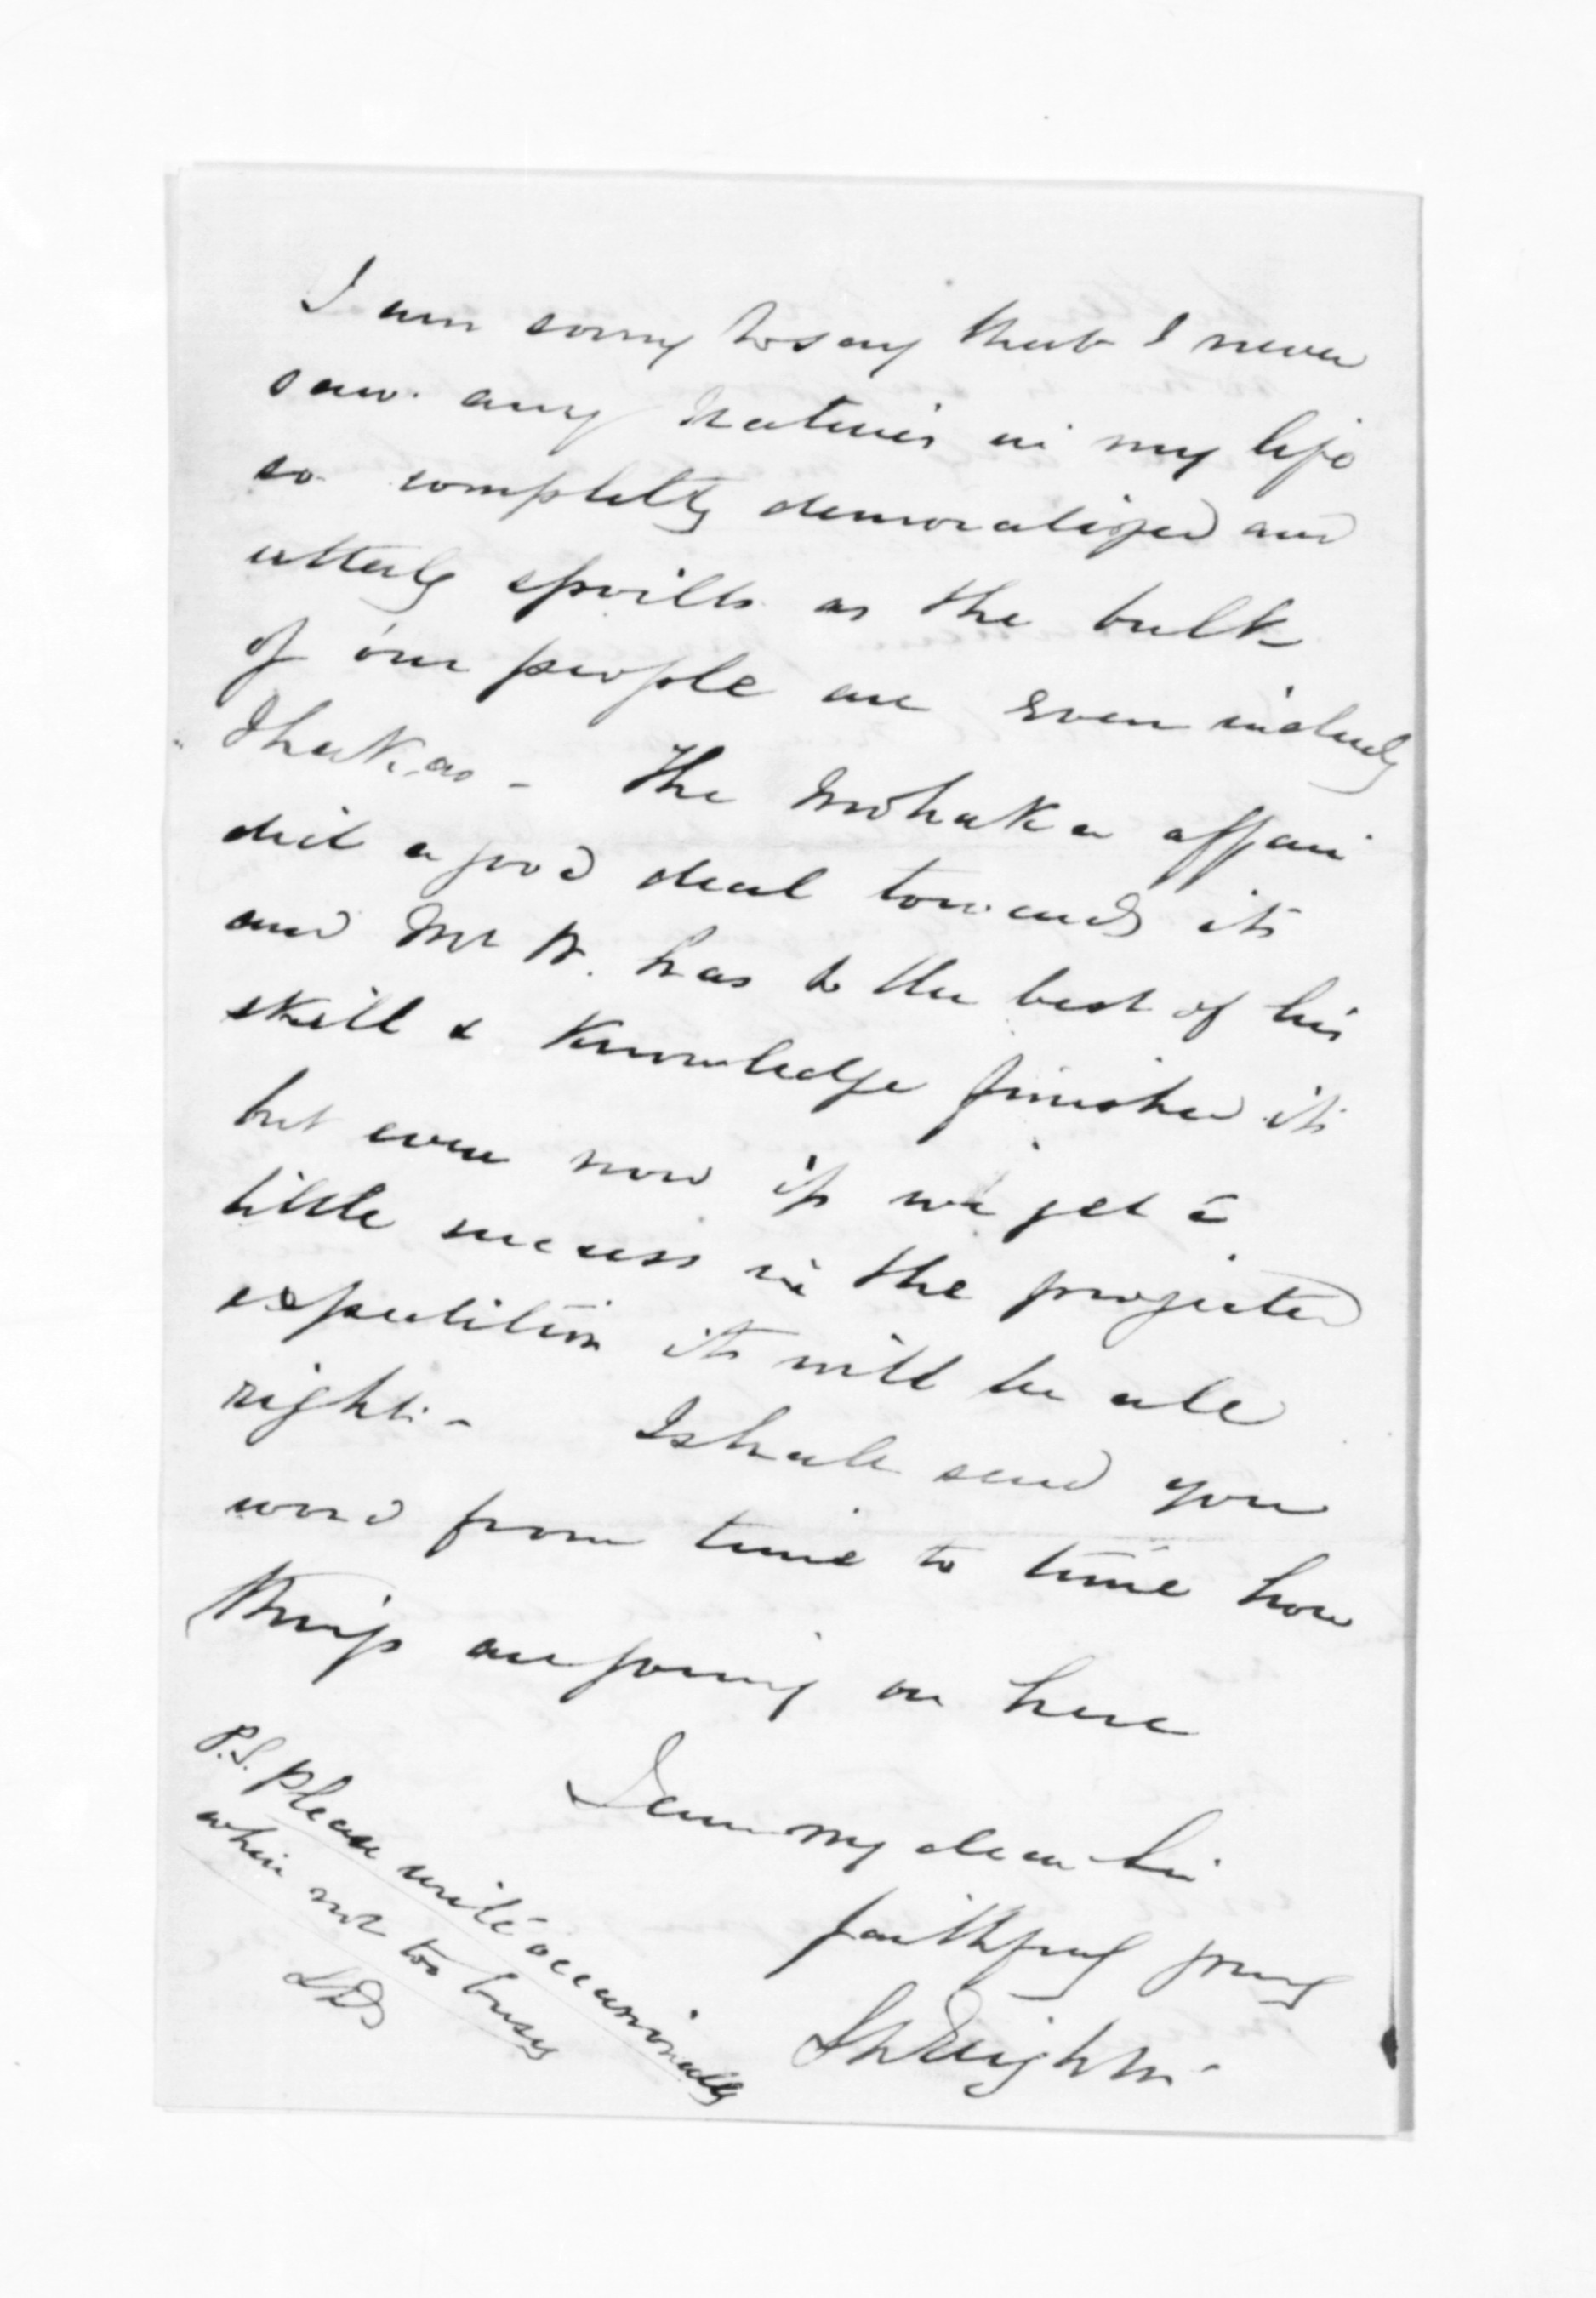 I am sorry to say that I never
saw any Natives in my life
so completely demoralized and
utterly spoilt as the bulk
of our people are even including
Ihaka - The Mohaka affair
did a good deal towards it
and Mr W. has to the best of his
skill & Knowledge finished it
but even now if we get a
little success in the projected
expedition it will be all
right - I shall send you
word from time to time how
things are going on here
I am my dear Sir
faithfully yours
P.S. please write occasionally
when not too busy